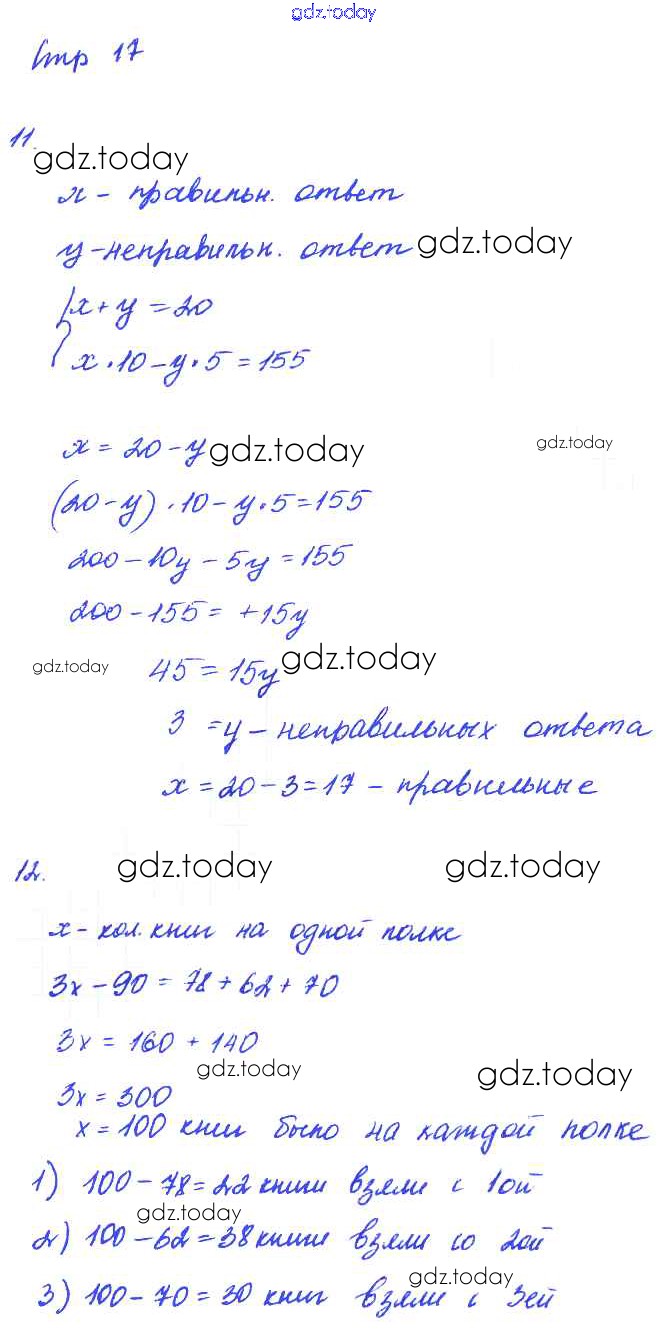 gdz.today
Стр 17
11.
gdz.today
x - правильн. ответ
y - неправильн. ответ gdz.today
{ x + y = 20
x · 10 - y · 5 = 155
x = 20 - y gdz.today gdz.today
(20 - y) · 10 - y · 5 = 155
200 - 10y - 5y = 155
200 - 155 = +15y
gdz.today 45 = 15y gdz.today
3 = y - неправильных ответа
x = 20 - 3 = 17 - правильные
12. gdz.today gdz.today
x - кол. книг на одной полке
3x - 90 = 78 + 62 + 70
3x = 160 + 140
gdz.today gdz.today
3x = 300
x = 100 книг было на каждой полке
1) 100 - 78 = 22 книги взяли с 1ой
gdz.today
2) 100 - 62 = 38 книги взяли со 2ой
gdz.today
3) 100 - 70 = 30 книг взяли с 3ей